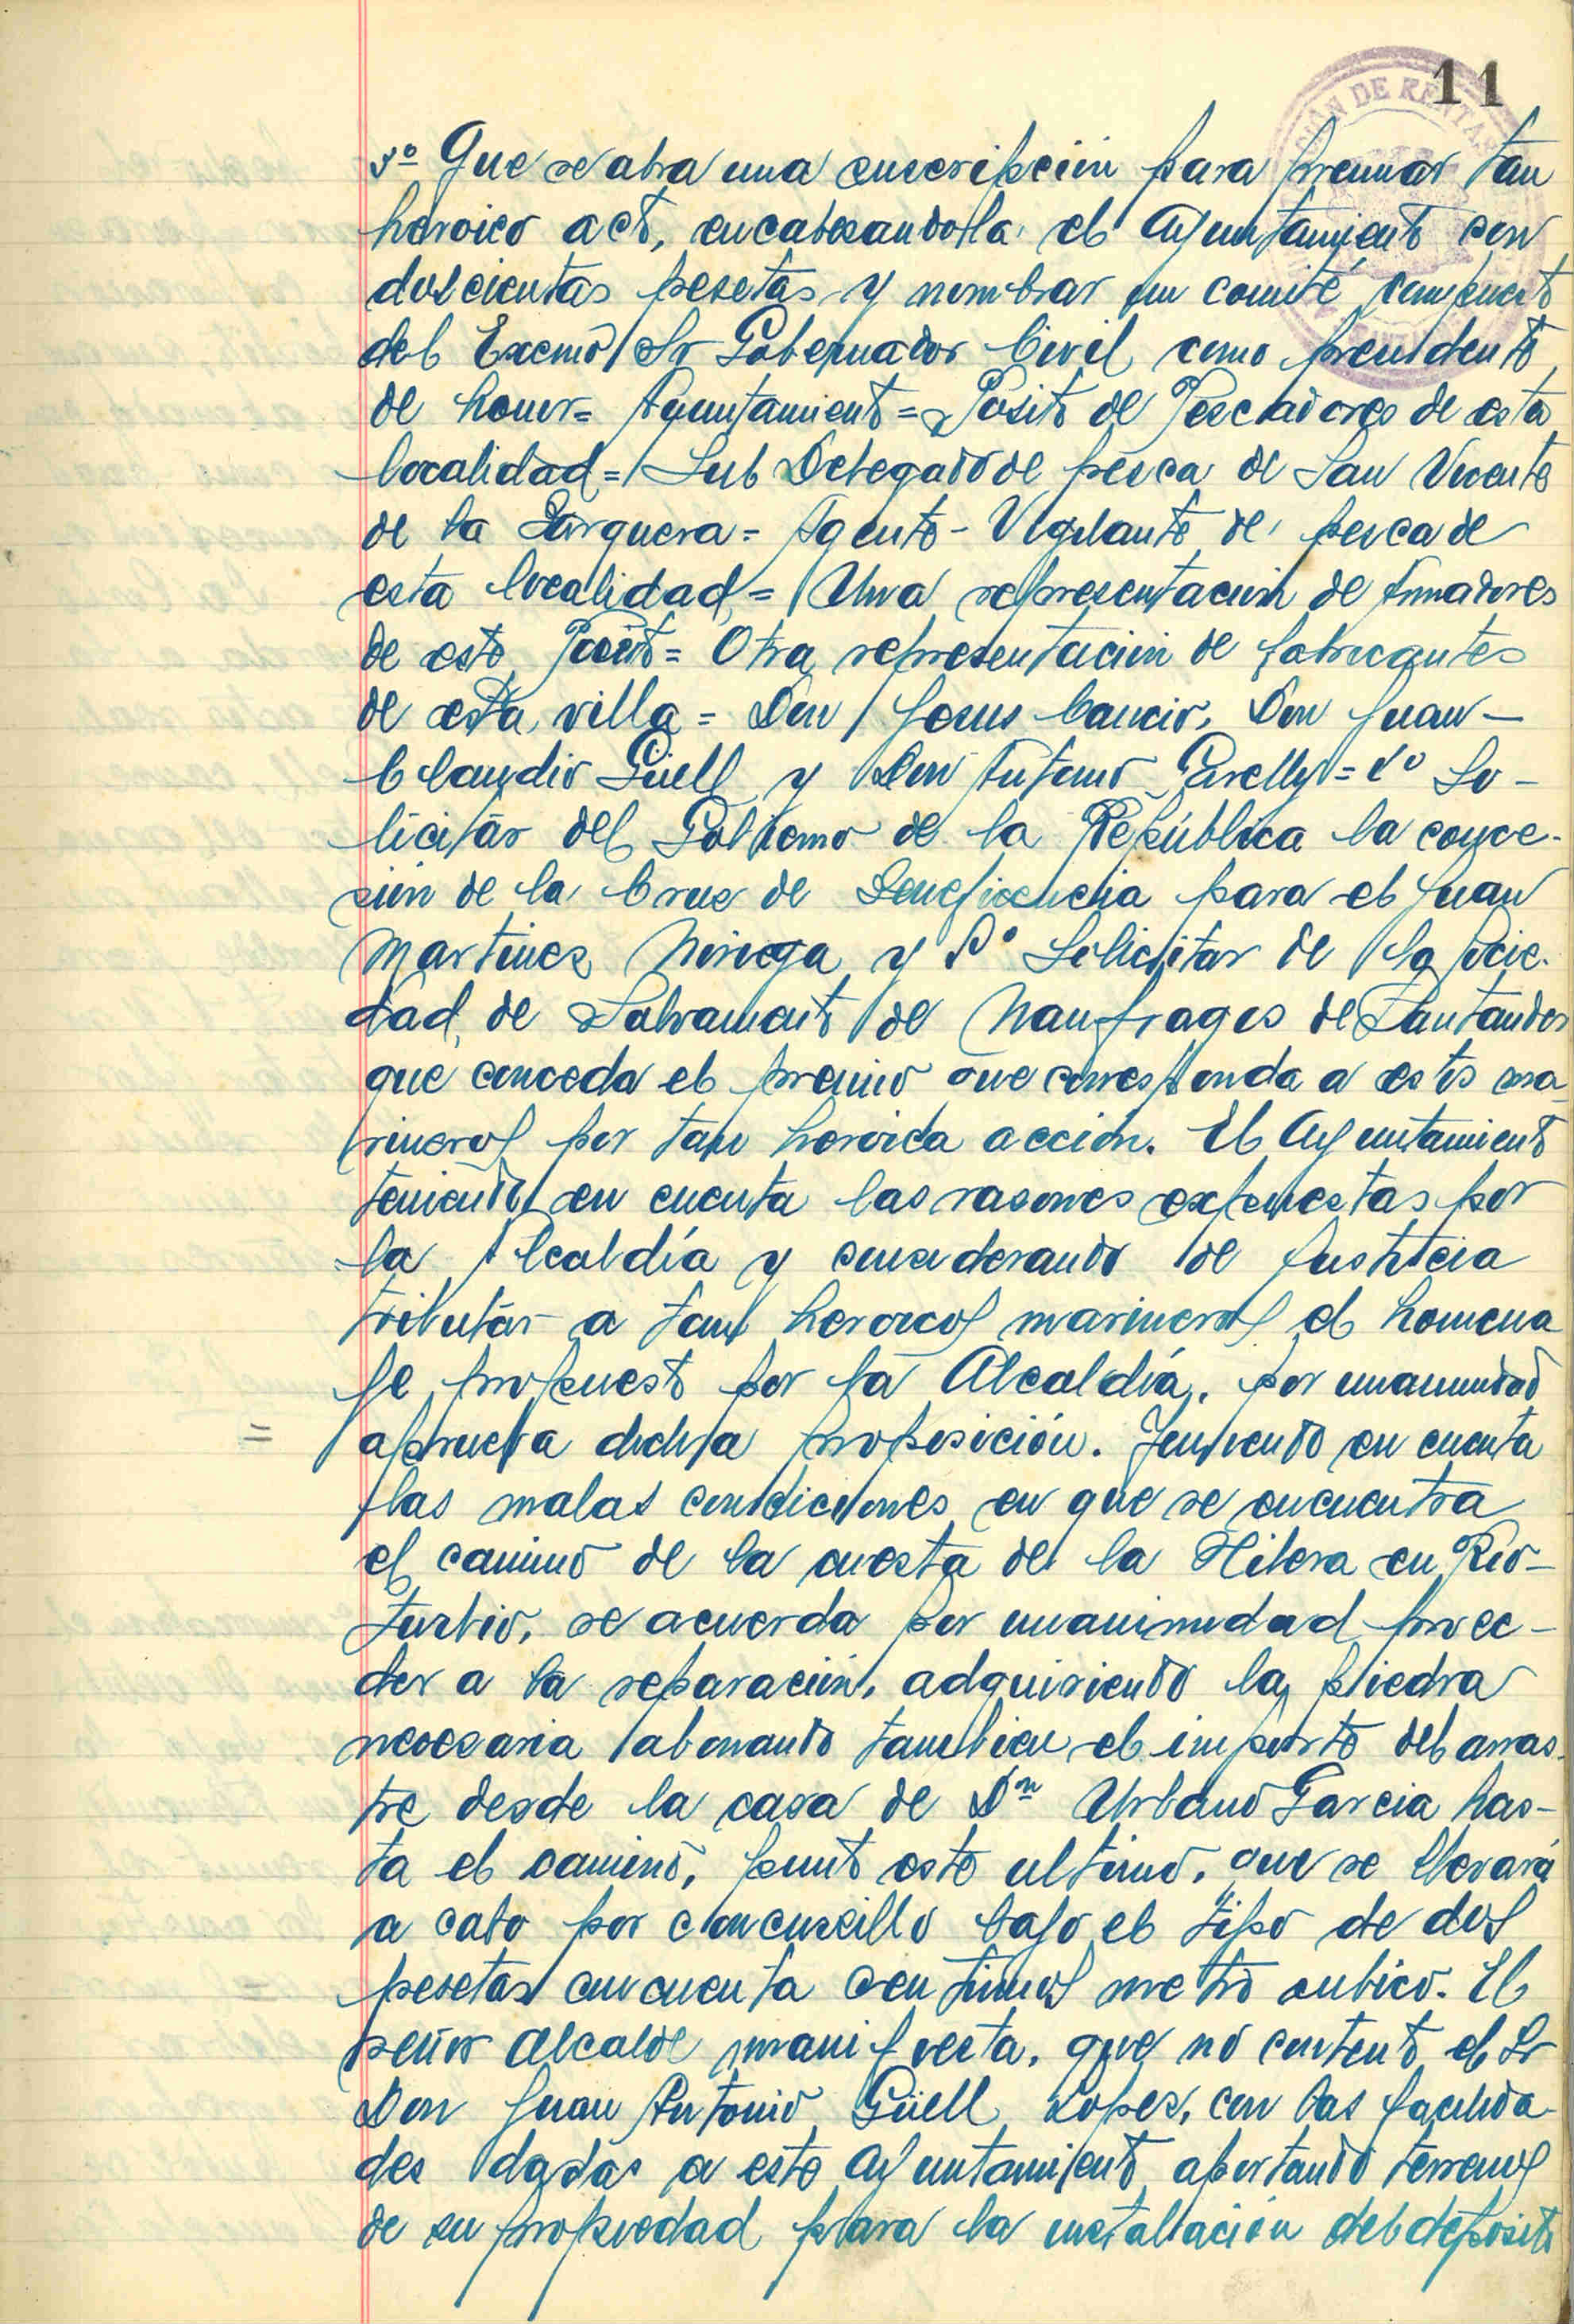 11
3º Que se abra una suscripción para premiar tan
heroico acto, encabezandola el Ayuntamiento con
doscientas pesetas y nombrar un comité compuesto
del Excmo Sr Gobernador Civil como presidente
de honor= Ayuntamiento= Pósito de Pescadores de esta
localidad= Sub Delegado de pesca de San Vicente
de la Barquera= Agente-Vigilante de pesca de
esta localidad= Una representación de Armadores
de este Puerto= Otra representación de fabricantes
de esta villa= Don Jesus Cancio, Don Juan-
Claudio Güell y Don Antonio = 4º So-
licitar del Gobierno de la República la conce-
sión de la Cruz de Beneficencia para el Juan
Martinez Noriega y 5º Solicitar de la Socie-
dad de Salvamento de Naufragos de Santander
que conceda el premio que corresponda a estos ma-
rineros por tan heroica acción. El Ayuntamiento
teniendo en cuenta las rasones expuestas por
la Alcaldía y considerando de Justicia
tributar a tan heroicos marineros el homena
je propuesto por la Alcaldía, por unanimidad
= aprueba dicha proposición. Teniendo en cuenta
las malas condiciones en que se encuentra
el camino de la cuesta de la Hilera en Rio-
turbio, se acuerda por unanimidad proce-
der a la reparación, adquiriendo la piedra
necesaria abonando tambien el importe del arras-
tre desde la casa de Dⁿ Urbano Garcia has-
ta el camino, punto este ultimo, que se llevará
a cabo por concursillo bajo el tipo de dos
pesetas cincuenta centimos metro cubico. El
señor Alcalde manifiesta, que no contento el Sr
Don Juan Antonio Güell Lopez, con las facilida-
des dadas a este Ayuntamiento aportando terrenos
de su propiedad para la instalación del deposito